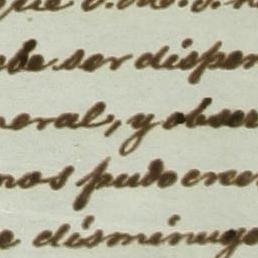 ebe ser dispen
neral, y obser
nos pudo creer
e disminuye